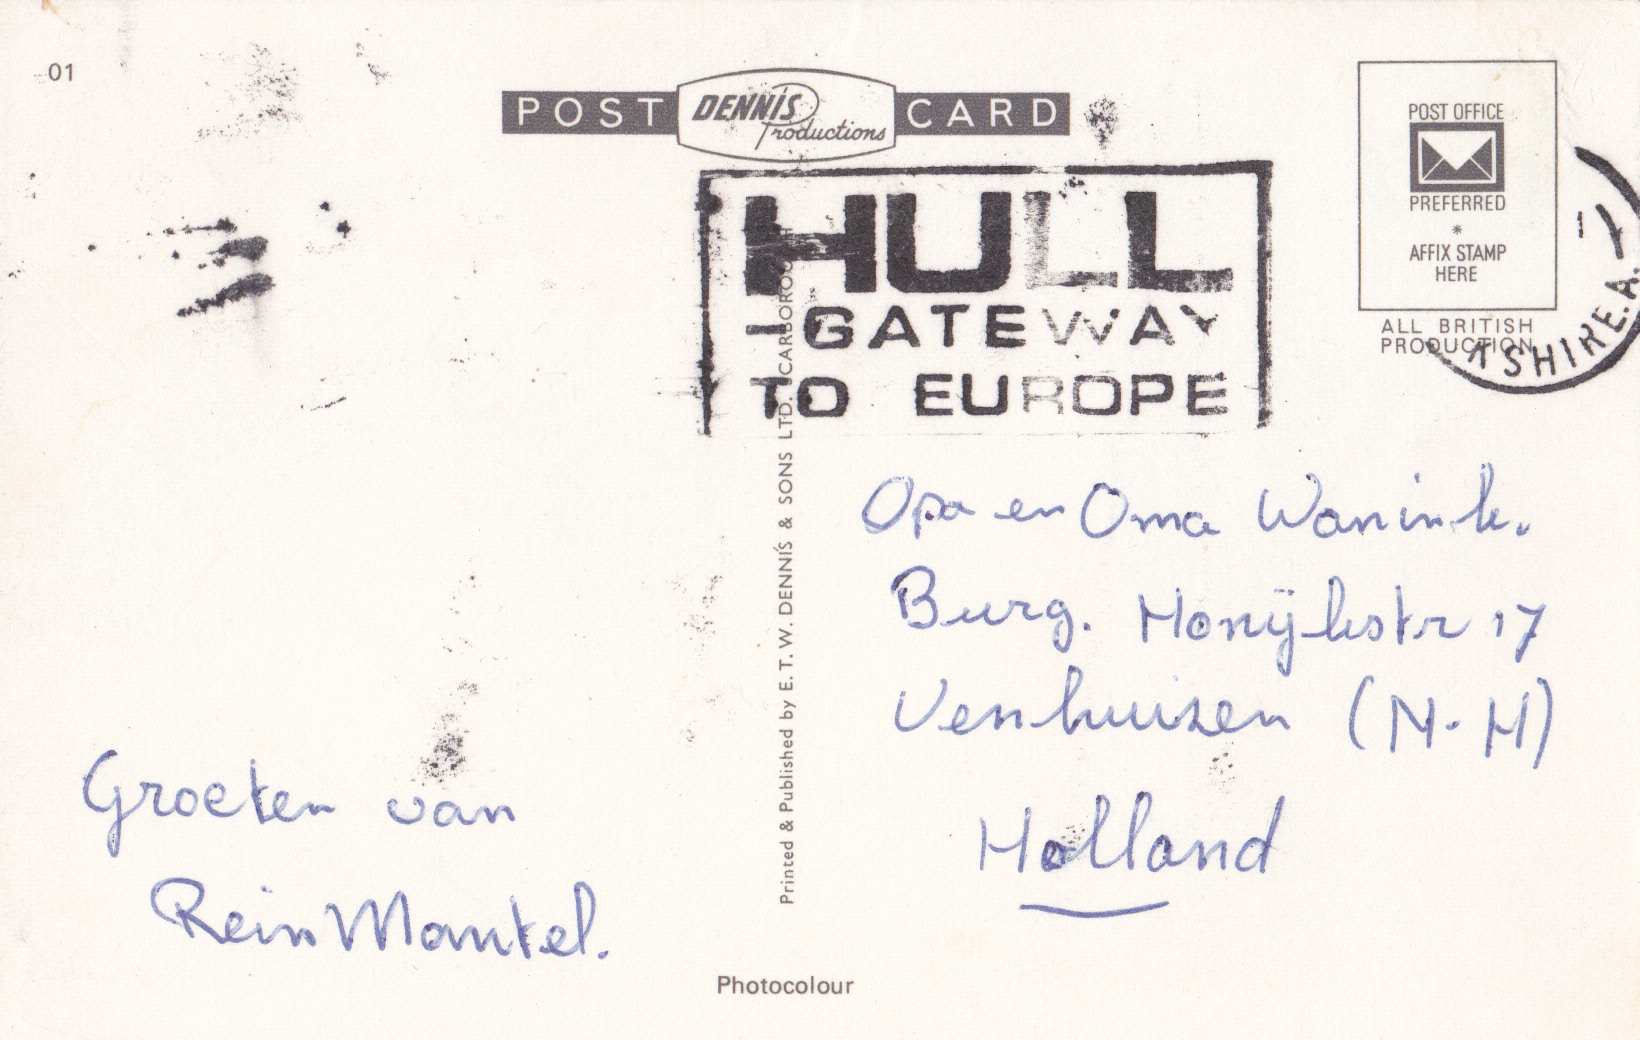 01
POST DENNIS Productions CARD
POST OFFICE
PREFERRED
*
AFFIX STAMP
HERE
ALL BRITISH
PRODUCTION
HULL
GATEWAY
TO EUROPE
SHIRE.A.
Printed & Published by E. T. W. DENNIS & SONS LTD. SCARBOROUGH
Opa en Oma Wanink.
Burg. Honijkstr 17
Venhuizen (N-H)
Holland
Groeten van
Rein Mantel.
Photocolour